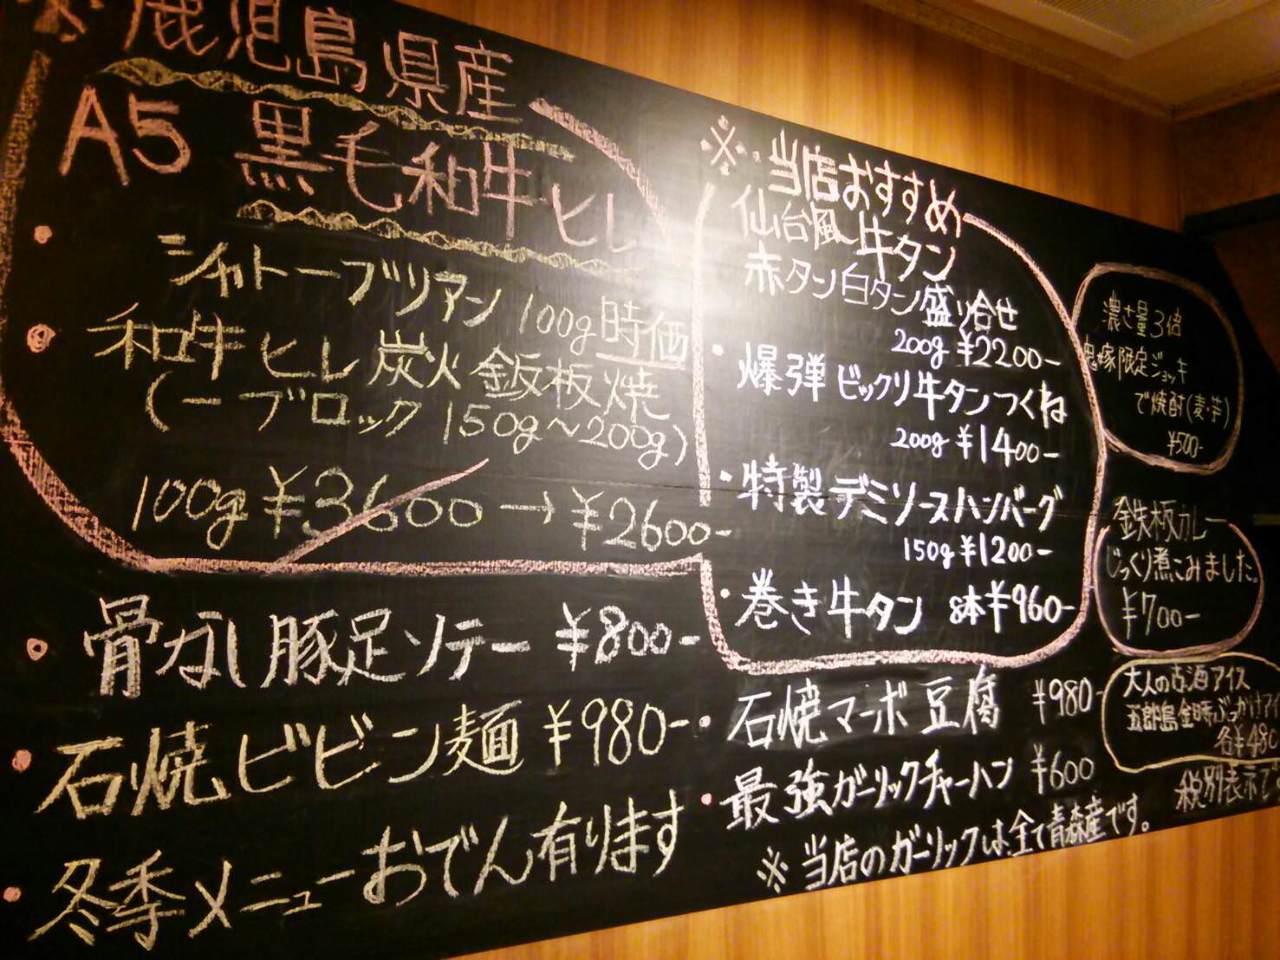 ※鹿児島県産
A5 黒毛和牛ヒレ
・シャトーブリアン 100g 時価
・和牛ヒレ 炭火 鈑板焼
(一ブロック 150g〜200g)
100g ¥3600 → ¥2600-
・骨なし豚足ソテー ¥800-
・石焼ビビン麺 ¥980-
・冬季メニューおでん有ります
※当店おすすめ
仙台風牛タン
赤タン白タン盛り合せ
200g ¥2200-
・爆弾ビックリ牛タンつくね
200g ¥1400-
・特製デミソースハンバーグ
150g ¥1200-
・巻き牛タン 8本¥960-
・石焼マーボ豆腐 ¥980-
・最強ガーリックチャーハン ¥600
※当店のガーリックは全て青森産です。
濃さ量3倍
鬼嫁限定ジョッキ
で焼酎(麦・芋)
¥500-
鉄板カレー
じっくり煮こみました。
¥700-
大人の古酒アイス
五郎島金時ぶっかけアイ
各¥480
税別表示で